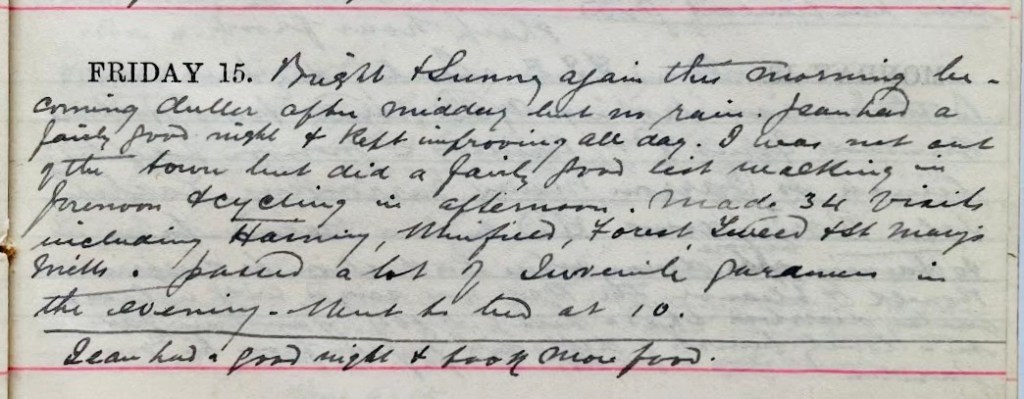 FRIDAY 15. Bright & Sunny again this morning be-
coming duller after midday but no rain. Jean had a
fairly good night & kept improving all day. I was not out
of the town but did a fairly good list walking in
forenoon & cycling in afternoon. Made 34 visits
including Harvey, Forest Tweed & St Mary's
Mills. passed a lot of Juvenile gardeners in
the evening. Went to bed at 10.
Jean had a good night & took more food.